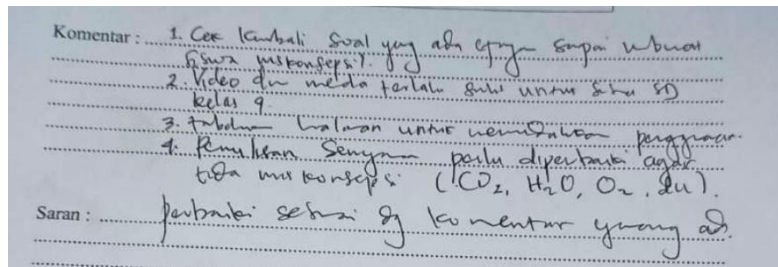 Komentar : 1. Cek kembali soal yang ada jangan sampai membuat
siswa miskonsepsi.
2. Video dan media terlalu sulit untuk siswa SD
kelas 4
3. halaman untuk memudahkan penggunaan
4. Penulisan Senyawa perlu diperbaiki agar
tidak miskonsepsi (CO2, H2O, O2, dll).
Saran : perbaiki sesuai dg komentar yang ada